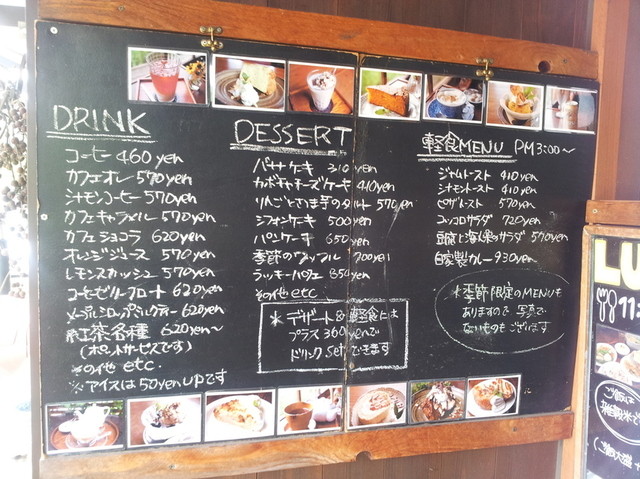 DRINK
コーヒー 460yen
カフェオレ 570yen
シナモンコーヒー 570yen
カフェキャラメル 570yen
カフェショコラ 620yen
オレンジジュース 570yen
レモンスカッシュ 570yen
コーヒーゼリーフロート 620yen
メープルシロップミルクティー 620yen
紅茶各種 620yen〜
(ポットサービスです)
その他 etc.
※アイスは50yenUPです
DESSERT
バナナケーキ 310yen
カボチャチーズケーキ 410yen
りんごとさつま芋のタルト 570yen
シフォンケーキ 500yen
パンケーキ 650yen
季節のワッフル 700yen
ラッキーパフェ 850yen
その他etc
＊デザート&軽食には
プラス360yenで
ドリンクsetできます
軽食MENU PM3:00〜
ジャムトースト 410yen
シナモントースト 410yen
ピザトースト 570yen
ココロサラダ 720yen
豆腐と海藻のサラダ 570yen
自家製カレー 930yen
＊季節限定のMENUも
ありますので 写真で
ないものもございます
LU
11: